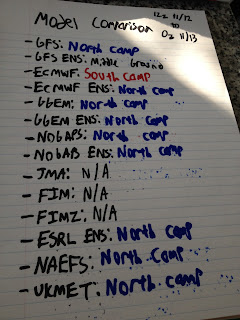 Model Comparison
12z 11/12
to
0z 11/13
- GFS: North Camp
- GFS ENS: Middle Ground
- ECMWF: South Camp
- ECMWF ENS: North Camp
- GGEM: North Camp
- GGEM ENS: North Camp
- NOGAPS: North Camp
- NOGAB ENS: North Camp
- JMA: N/A
- FIM: N/A
- FIMZ: N/A
- ESRL ENS: North Camp
- NAEFS: North Camp
- UKMET: North Camp